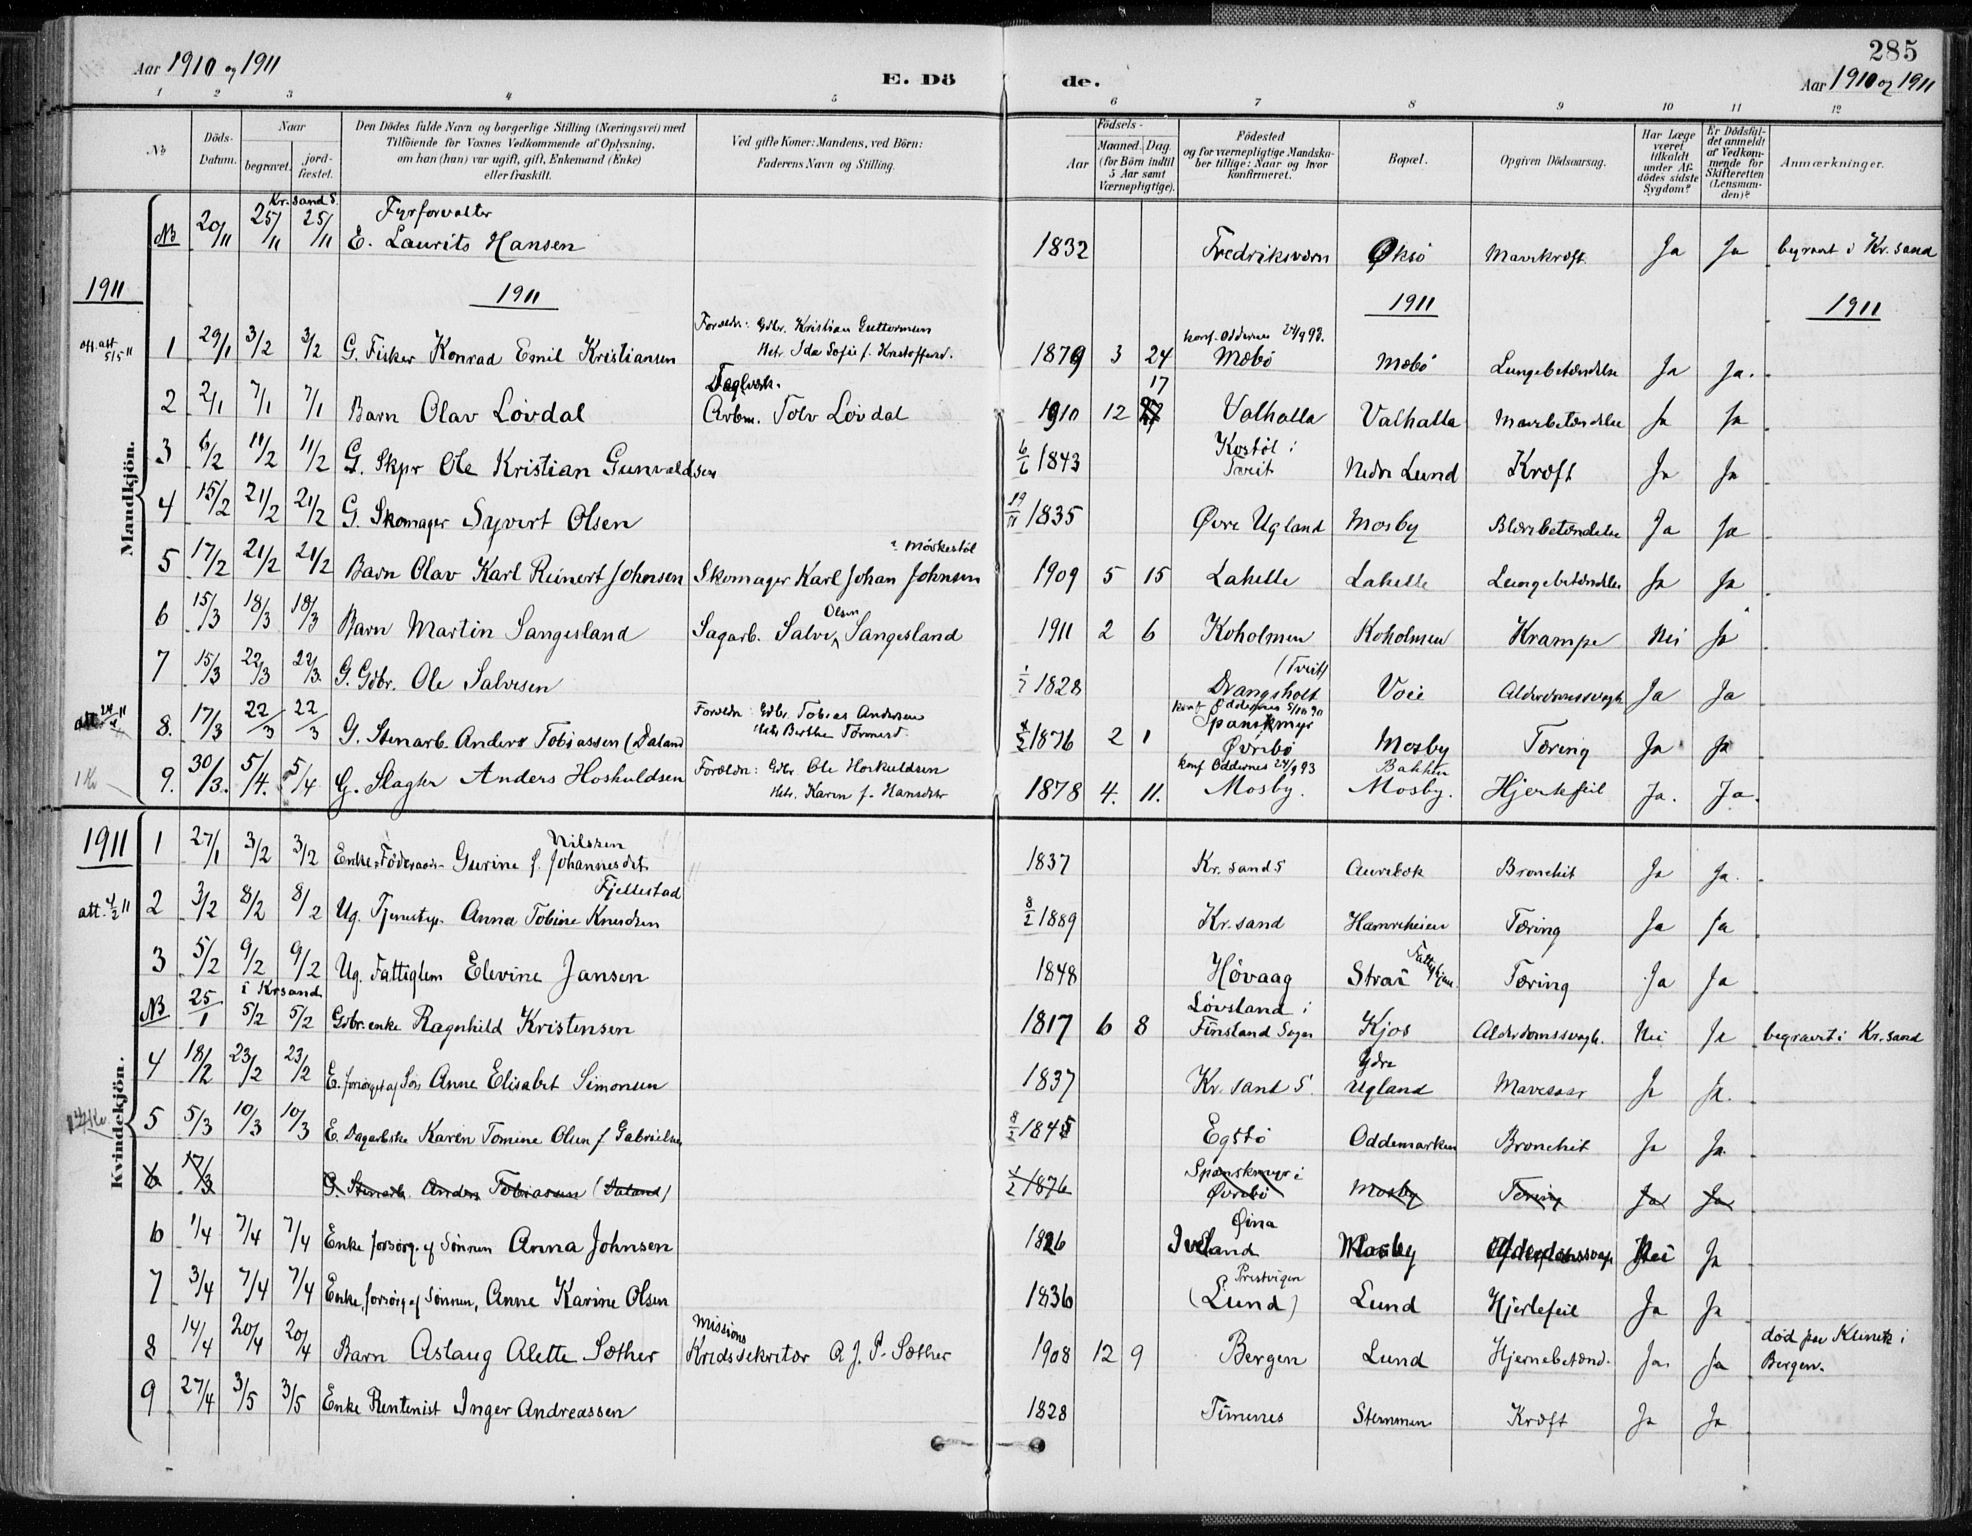 Aar 1910 og 1911
E. Dö
de.
285
Aar 1910 og 1911
1 2 3 4 5 6 7 8 9 10 11 12
No.
Döds-Datum.
Naar
begravet.
jord-fæstet.
Den Dödes fulde Navn og borgerlige Stilling (Næringsvei) med Tilföiende for Voxnes Vedkommende af Oplysning, om han (hun) var ugift, gift, Enkemand (Enke) eller fraskilt.
Ved gifte Koner: Mandens, ved Börn: Faderens Navn og Stilling.
Födsels-
Aar
Maaned. Dag.
(for Börn indtil 5 Aar samt Værnepligtige).
Födested og for værnepligtige Mandskaber tillige: Naar og hvor konfirmeret.
Bopæl.
Opgiven Dödsaarsag.
Har Læge været tilkaldt under Afdödes sidste Sygdom?
Er Dödsfaldet anmeldt af Vedkommende for Skifteretten (Lensmanden)?
Anmærkninger.
Mandkjön.
Kr.sand S.
NB 20/11 25/11 25/11 Fyrforvalter E. Laurits Hansen 1832 Fredriksværn Øksö Mavekræft Ja Ja begravt i Kr.sand
1911 1911 1911 1911
1 29/1 3/2 3/2 G. Fisker Konrad Emil Kristiansen Foreldr: Gdbr. Kristian Guttormsen Ida Sofie f. 1879 3 24 konf. Oddernes Mæbö Mæbö Lungebetændelse Ja Ja.
2 2/1 7/1 7/1 Barn Olav Lövdal Arbm. Tolv Lövdal 1910 12 17 Valhalla Valhalla Mavebetændelse Ja Ja
3 6/2 11/2 11/2 G. Skpr Ole Kristian Gunvaldsen 6/6 1843 Kostöl i Tveit Nedre Lund Kræft Ja Ja
4 15/2 21/2 21/2 G. Skomager Syvert Olsen 19/11 1835 Øvre Ugland Mosby Blærebetændelse Ja Ja
5 17/2 21/2 21/2 Barn Olav Karl Reinert Johnsen Skomager Karl Johan Johnsen 1909 5 15 Lahelle Lahelle Lungebetændelse Ja Ja
6 15/3 18/3 18/3 Barn Martin Sangesland Sagarb. Salve Olsen Sangesland 1911 2 6 Koholmen Koholmen Krampe Nei Ja
7 15/3 22/3 22/3 G. Gdbr. Ole Salvesen 1/7 1828 Drangsholt (Tveit) Voie Alderdomssvagh. Ja Ja
8. 17/3 22/3 22/3 G. Stenarb. Anders Tobiassen (Daland Foreldr: Gdbr. Tobias Andersen Berthe 1876 2 1 konf Oddernes Spanskmyr Øvrebö Mosby Tæring Ja Ja
9. 30/3. 5/4. 5/4 G. Slagter Anders Hoskuldsen Foreldr: Gdbr. Ole Hoskuldsen Karen f. Hansdtr 1878 4. 11. konf Oddernes 24/9 93 Mosby. Bakken Mosby. Hjertefeil Ja. Ja.
Kvindekjön.
1911
1 27/1 3/2 3/2 Enke Föderaads- Gurine Nilssen f. Johannesdtr 1837 Kr.sand S Aurebæk Bronchit Ja Ja.
att. 4/2 11
2 3/2 8/2 8/2 Ug. Tjenestep. Anna Tobine Knudsen Fjellestad 8/2 1889 Kr.sand Hamreheien Tæring Ja Ja
3 5/2 9/2 9/2 Ug. Fattiglem Elevine Jansen 1848 Hövaag Strai Tæring Ja Ja
i Kr.sand
NB 25/1 5/2 5/2 Gdbr.enke Ragnhild Kristensen 1817 6 8 Lövsland i Finsland Sogn Kjos Alderdomssvagh. Nei Ja begravet i Kr.sand
4 18/2 23/2 23/2 E. forsörget af Sön Anne Elisabet Simonsen 1837 Kr.sand S. Ydre Ugland Mavesaar Ja Ja.
5 5/3 10/3 10/3 E. Karen Tomine Olsen f. Gabrielsen 8/2 1845 Egstö Oddemarken Bronchit Ja Ja.
6 17/3 G. Stenarb. Anders Tobiassen (Daland) 1876 Spanskmyr i Øvrebö Mosby Tæring Ja Ja
6 1/4 7/4 7/4 Enke forsörg. af Sönnen Anna Johnsen 1826 Øina Iveland Mosby Alderdomssvagh Nei Ja
7 3/4 7/4 7/4 Enke, forsörg af Sönnen, Anne Karine Olsen 1836 Prestvigen (Lund) Lund Hjertefeil Ja Ja
8 14/4 20/4 20/4 Barn Aslaug Alette Sæther Missions Kredssekretær A J. P. Sæther 1908 12 9 Bergen Lund Hjernebetænd. Ja. Ja död paa Klinik i Bergen.
9 27/4 3/5 3/5 Enke Rentenist Inger Andreassen 1828 Timenes Stemmen Kræft Ja Ja